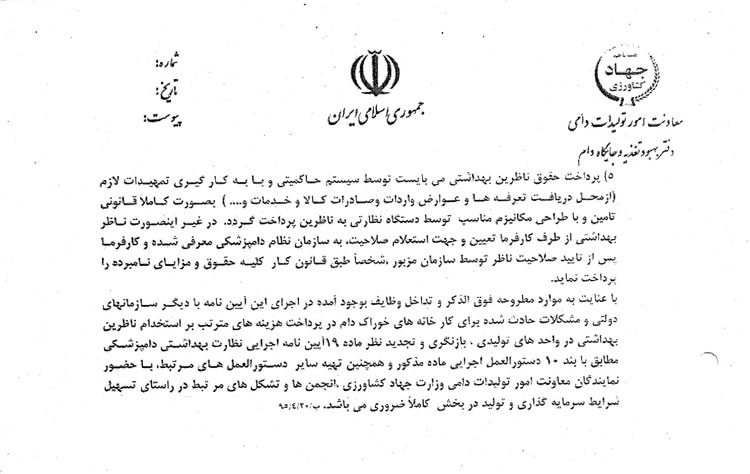 شماره:
تاریخ:
پیوست:
جمهوری اسلامی ایران
جهاد
کشاورزی
معاونت امور تولیدات دامی
دفتر بهبود تغذیه و جایگاه دام
۵) پرداخت حقوق ناظرین بهداشتی می بایست توسط سیستم حاکمیتی و با به کار گیری تمهیدات لازم
(ازمحل دریافت تعرفه ها و عوارض واردات وصادرات کالا و خدمات و.... ) بصورت کاملاً قانونی
تامین و با طراحی مکانیزم مناسب توسط دستگاه نظارتی به ناظرین پرداخت گردد. در غیر اینصورت ناظر
بهداشتی از طرف کارفرما تعیین و جهت استعلام صلاحیت، به سازمان نظام دامپزشکی معرفی شده و کارفرما
پس از تایید صلاحیت ناظر توسط سازمان مزبور ,شخصاً طبق قانون کار کلیه حقوق و مزایای نامبرده را
پرداخت نماید.
با عنایت به موارد مطروحه فوق الذکر و تداخل وظایف بوجود آمده در اجرای این آیین نامه با دیگر سازمانهای
دولتی و مشکلات حادث شده برای کار خانه های خوراک دام در پرداخت هزینه های مترتب بر استخدام ناظرین
بهداشتی در واحد های تولیدی ، بازنگری و تجدید نظر ماده ۱۹آیین نامه اجرایی نظارت بهداشتی دامپزشکی
مطابق با بند ۱۰ دستورالعمل اجرایی ماده مذکور و همچنین تهیه سایر دستورالعمل های مرتبط، با حضور
نمایندگان معاونت امور تولیدات دامی وزارت جهاد کشاورزی ,انجمن ها و تشکل های مر تبط در راستای تسهیل
شرایط سرمایه گذاری و تولید در بخش کاملاً ضروری می باشد. ب/۹۵/۴/۲۰